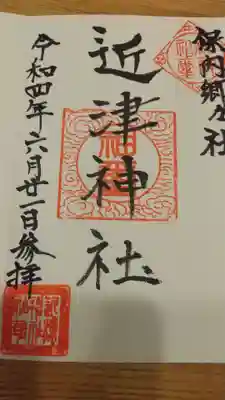 保内郷々社
近津神社
令和四年六月廿一日参拝